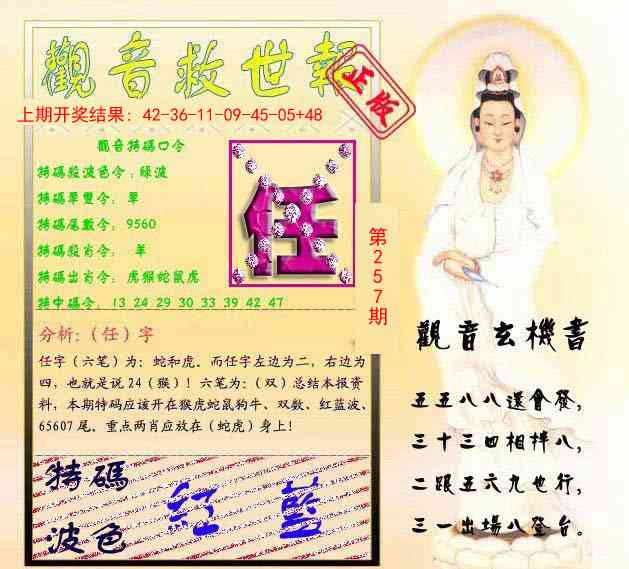 觀音救世報
正版
上期开奖结果：42-36-11-09-45-05+48
觀音特碼口令
特碼殺波色令：綠波
特碼單雙令： 單
特碼尾數令： 9560
特碼殺肖令： 羊
特碼出肖令： 虎猴蛇鼠虎
特中碼令： 13 24 29 30 33 39 42 47
任
第257期
分析:（任）字
任字（六笔）为：蛇和虎。而任字左边为二，右边为
四，也就是说24（猴）！六笔为：（双）总结本报资
料，本期特码应该开在猴虎蛇鼠狗牛、双数、红蓝波、
65607尾。重点两肖应放在（蛇虎）身上！
特碼
波色
紅 藍
觀音玄機書
五五八八還會發，
三十三四相拌八，
二跟五六九也行，
三一出場八登台。